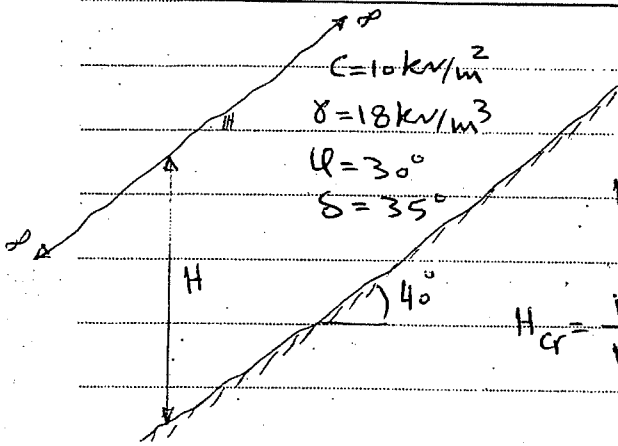 ∞
C=10 kN/m²
γ=18 kN/m³
φ=30°
δ=35°
∞
H
40°
H cr =